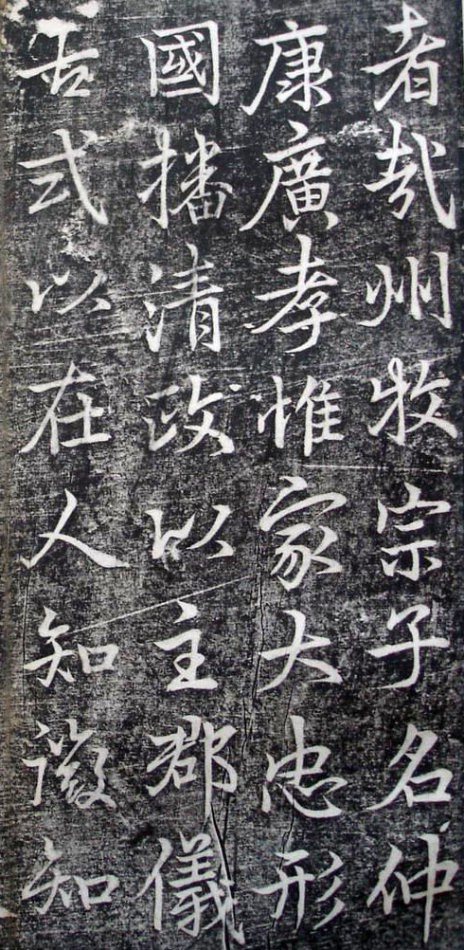 者哉州牧宗子名仲
康廣孝惟家大忠形
國播清政以主郡儀
古式以在人知徵知